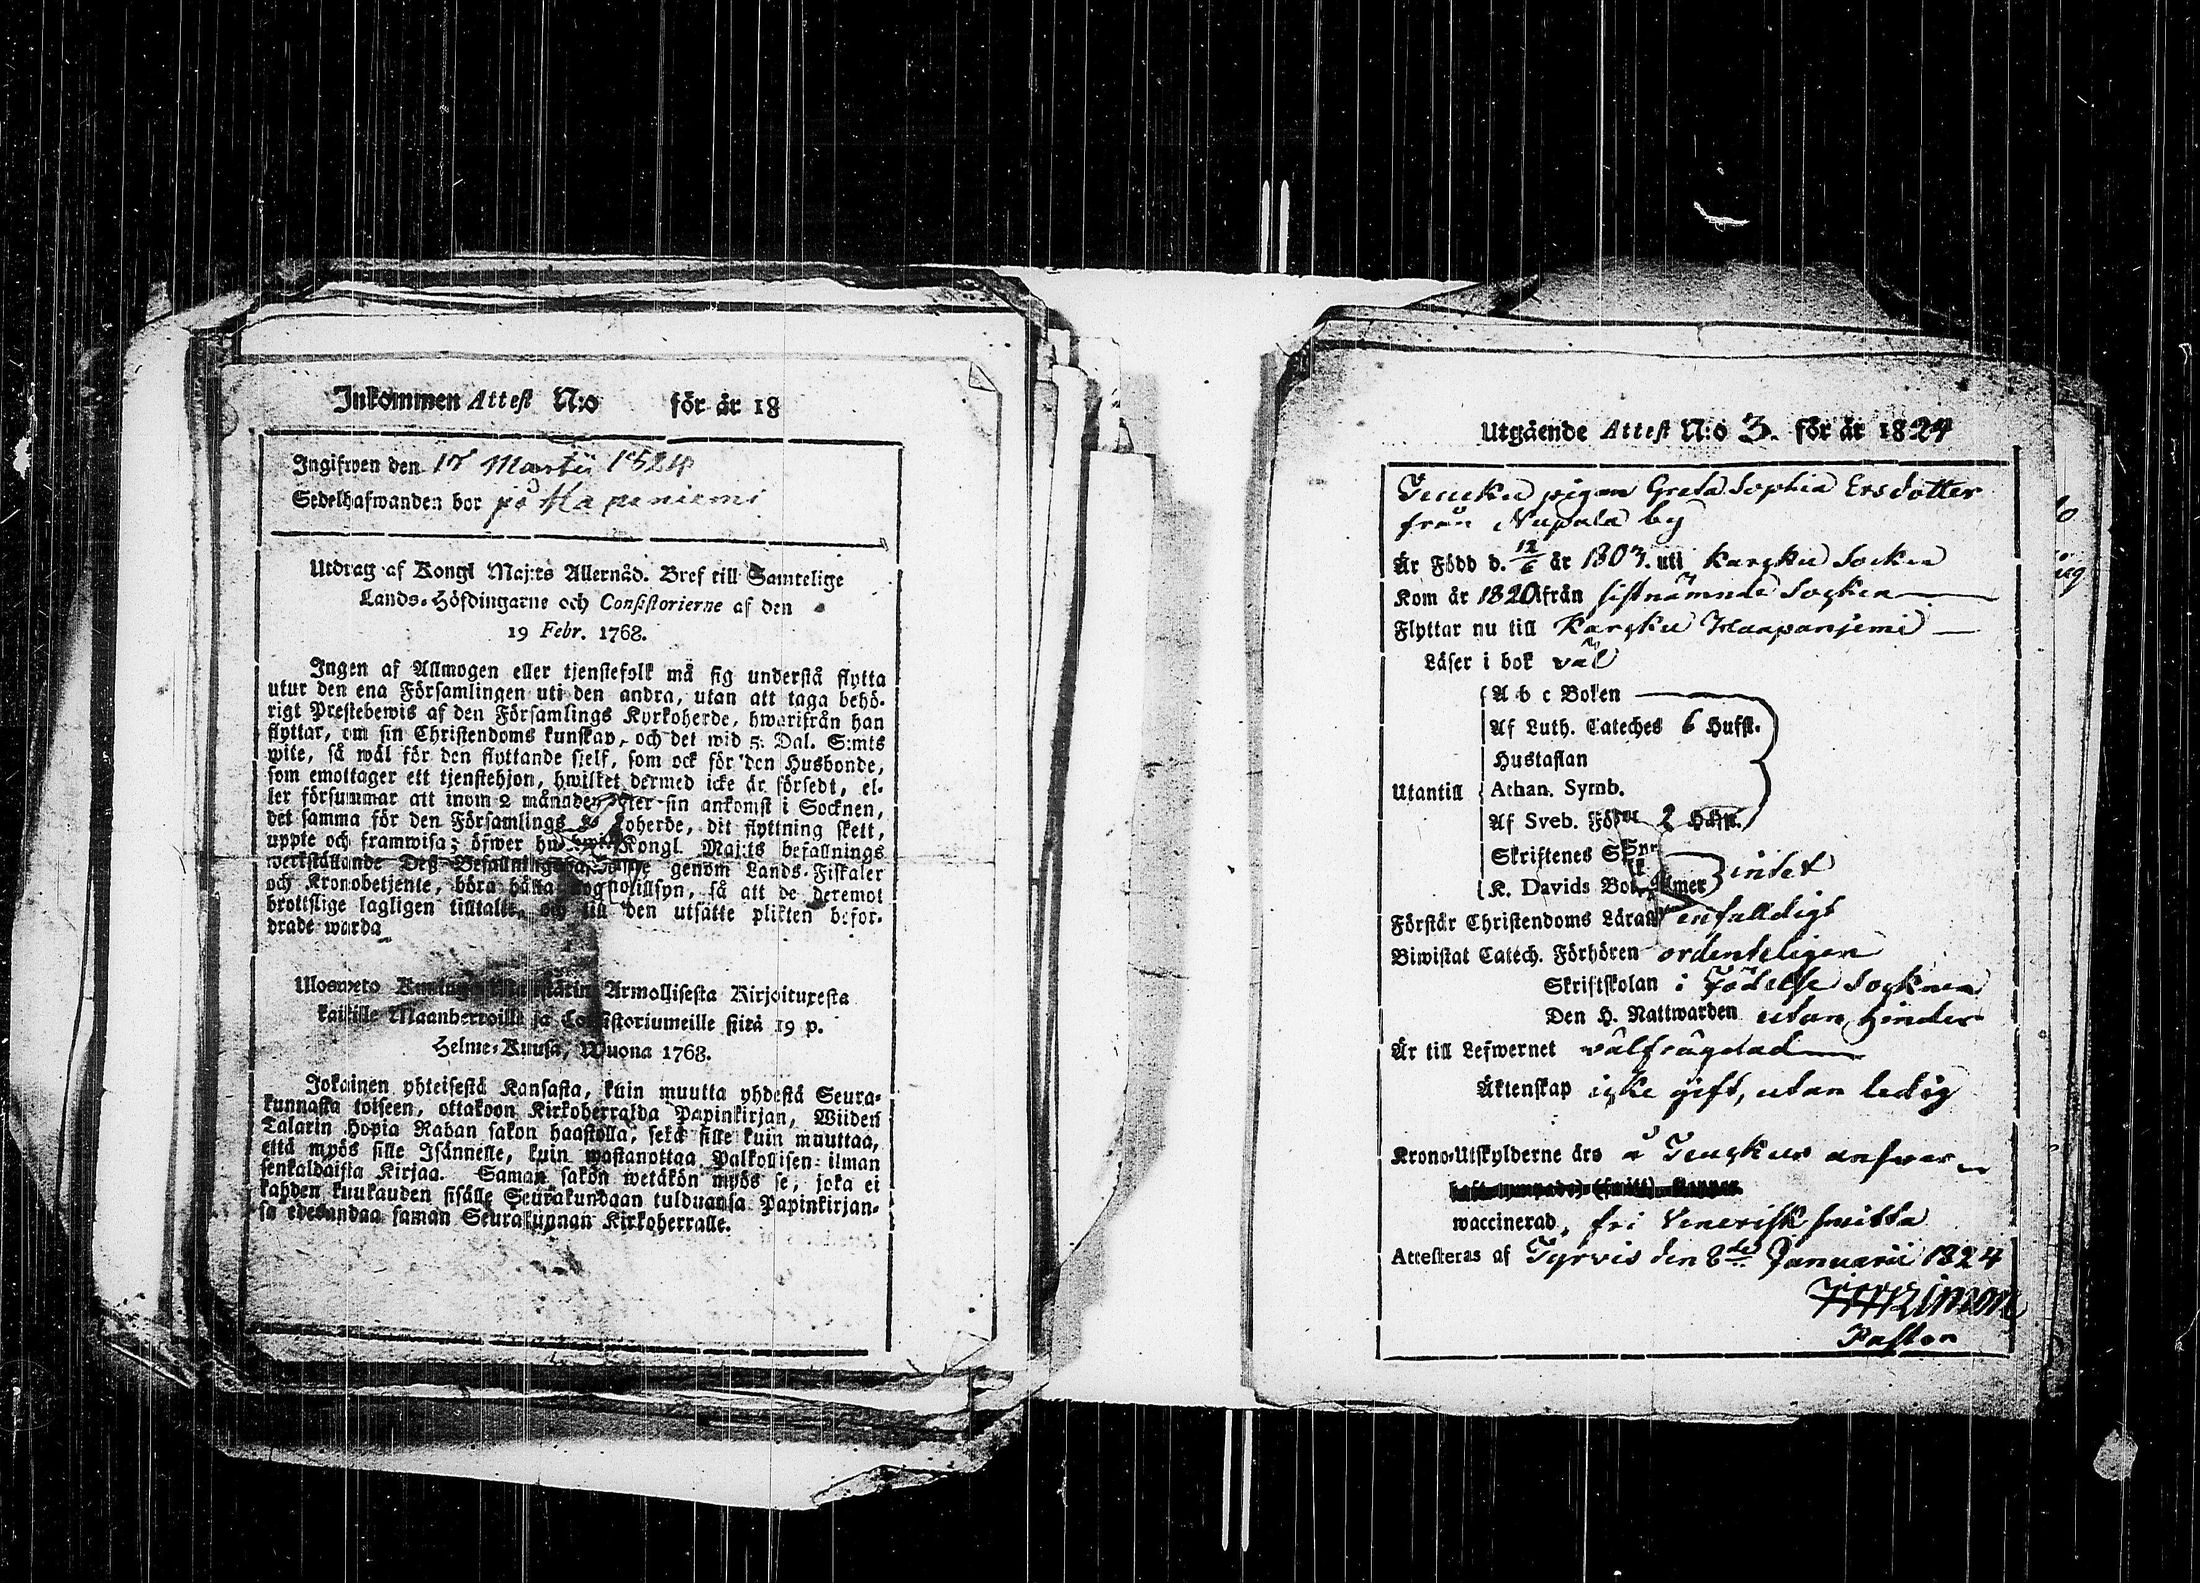 Inkommen Attest N:o för år 18
Ingifwen den 17 Martii 1824
Sedelhafwanden bor på Hapaniemi
Utdrag af Kongl Maj:ts Allernåd. Bref till Samtelige
Lands-Höfdingarne och Consistorierne af den
19 Febr. 1768.
Ingen af Allmogen eller tjenstefolk må sig understå flytta
utur den ena Församlingen uti den andra, utan att taga behö-
rigt Prestebewis af den Församlings Kyrkoherde, hwarifrån han
flyttar, om sin Christendoms kunskap, och det wid 5: Dal. S:mts
wite, så wäl för den flyttande sjelf, som ock för den Husbonde,
som emottager ett tjenstehjon, hwilket dermed icke är försedt, el-
ler försummar att inom 2 månader efter sin ankomst i Socknen,
det samma för den Församlings koherde, dit flyttning skett,
uppte och framwisa; öfwer hwilket Kongl. Maj:ts befallnings
werkställande Deß Befallningshafwande genom Lands-Fiskaler
och Kronobetjente, böra hålla noga tillsyn, så att de deremot
brottslige lagligen tilltalte, och till den utsatte plikten befor-
drade warda
Ulosweto Kuning. Majestätin Armollisesta Kirjoituxesta
kaikille Maanherroille ja Consistoriumeille siitä 19 p.
Helme-Kuusa, Wuona 1768.
Jokainen yhteisestä Kansasta, kuin muutta yhdestä Seura-
kunnasta toiseen, ottakoon Kirkoherralda Papinkirjan, Wiiden
Talarin Hopia Rahan sakon haastolla, sekä sille kuin muuttaa,
että myös sille Isännelle, kuin wastanottaa Palkollisen ilman
senkaldaista Kirjaa. Saman sakon wetäkön myös se, joka ei
kahden kuukauden sisälle Seurakundaan tulduansa Papinkirjan-
sa edesandaa saman Seurakunnan Kirkoherralle.
Utgående Attest N:o 3. för år 1824
pigan Greta Sophia Ersdotter
från Nupala by
Är Född d. 12/6 år 1803. uti Karkku Socken
Kom år 1820 ifrån sistnämnde Socken
Flyttar nu till Karkku Haapanjemi
Läser i bok väl
Utantill
A b c Boken
Af Luth. Cateches 6 Hufst.
Hustaflan
Athan. Symb.
Af Sveb. Förkl 2 Häft.
Skriftenes Spr
K. Davids Bot
intet
Förstår Christendoms Läran enfaldigt
Biwistat Catech. Förhören ordenteligen
Skriftskolan i Födelse Socknen
Den H. Nattwarden utan hinder
Är till Lefwernet välfrägdad
Äktenskap icke gift, utan ledig
Krono-Utskylderne års å answar
waccinerad, fri Venerisk smitta
Attesteras af Tyrvis den 8de Januarii 1824
Pastor